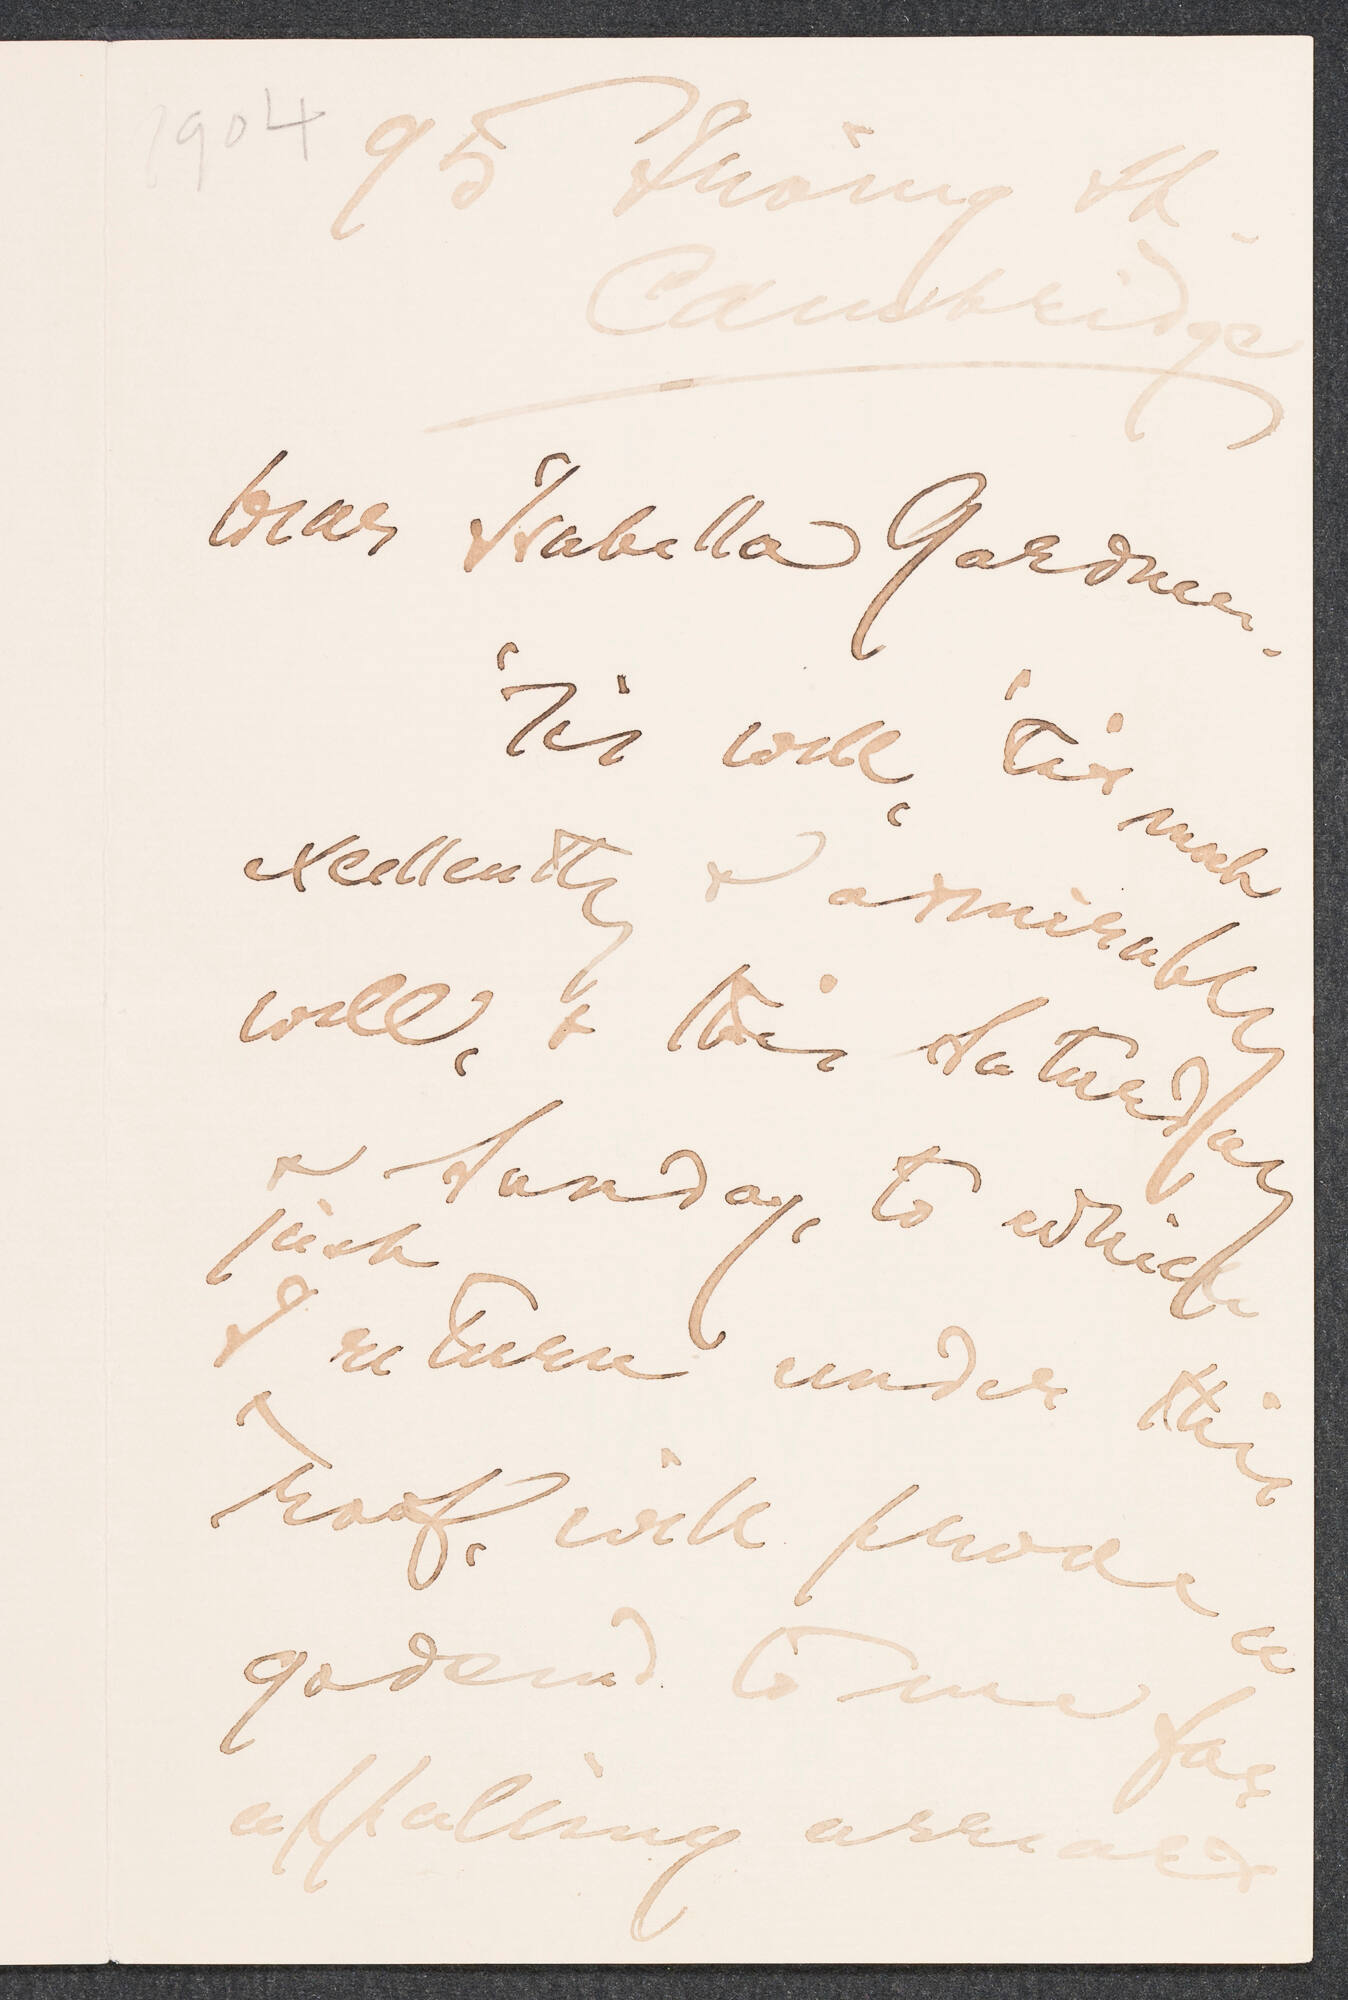 1904
95 Irving St.
Cambridge
Dear Isabella Gardner.
'Tis well, 'tis most
excellently & admirably
well, & this Saturday
& Sunday, to which
just
I return under this
roof, will prove a
godsend to me for
appalling arrears